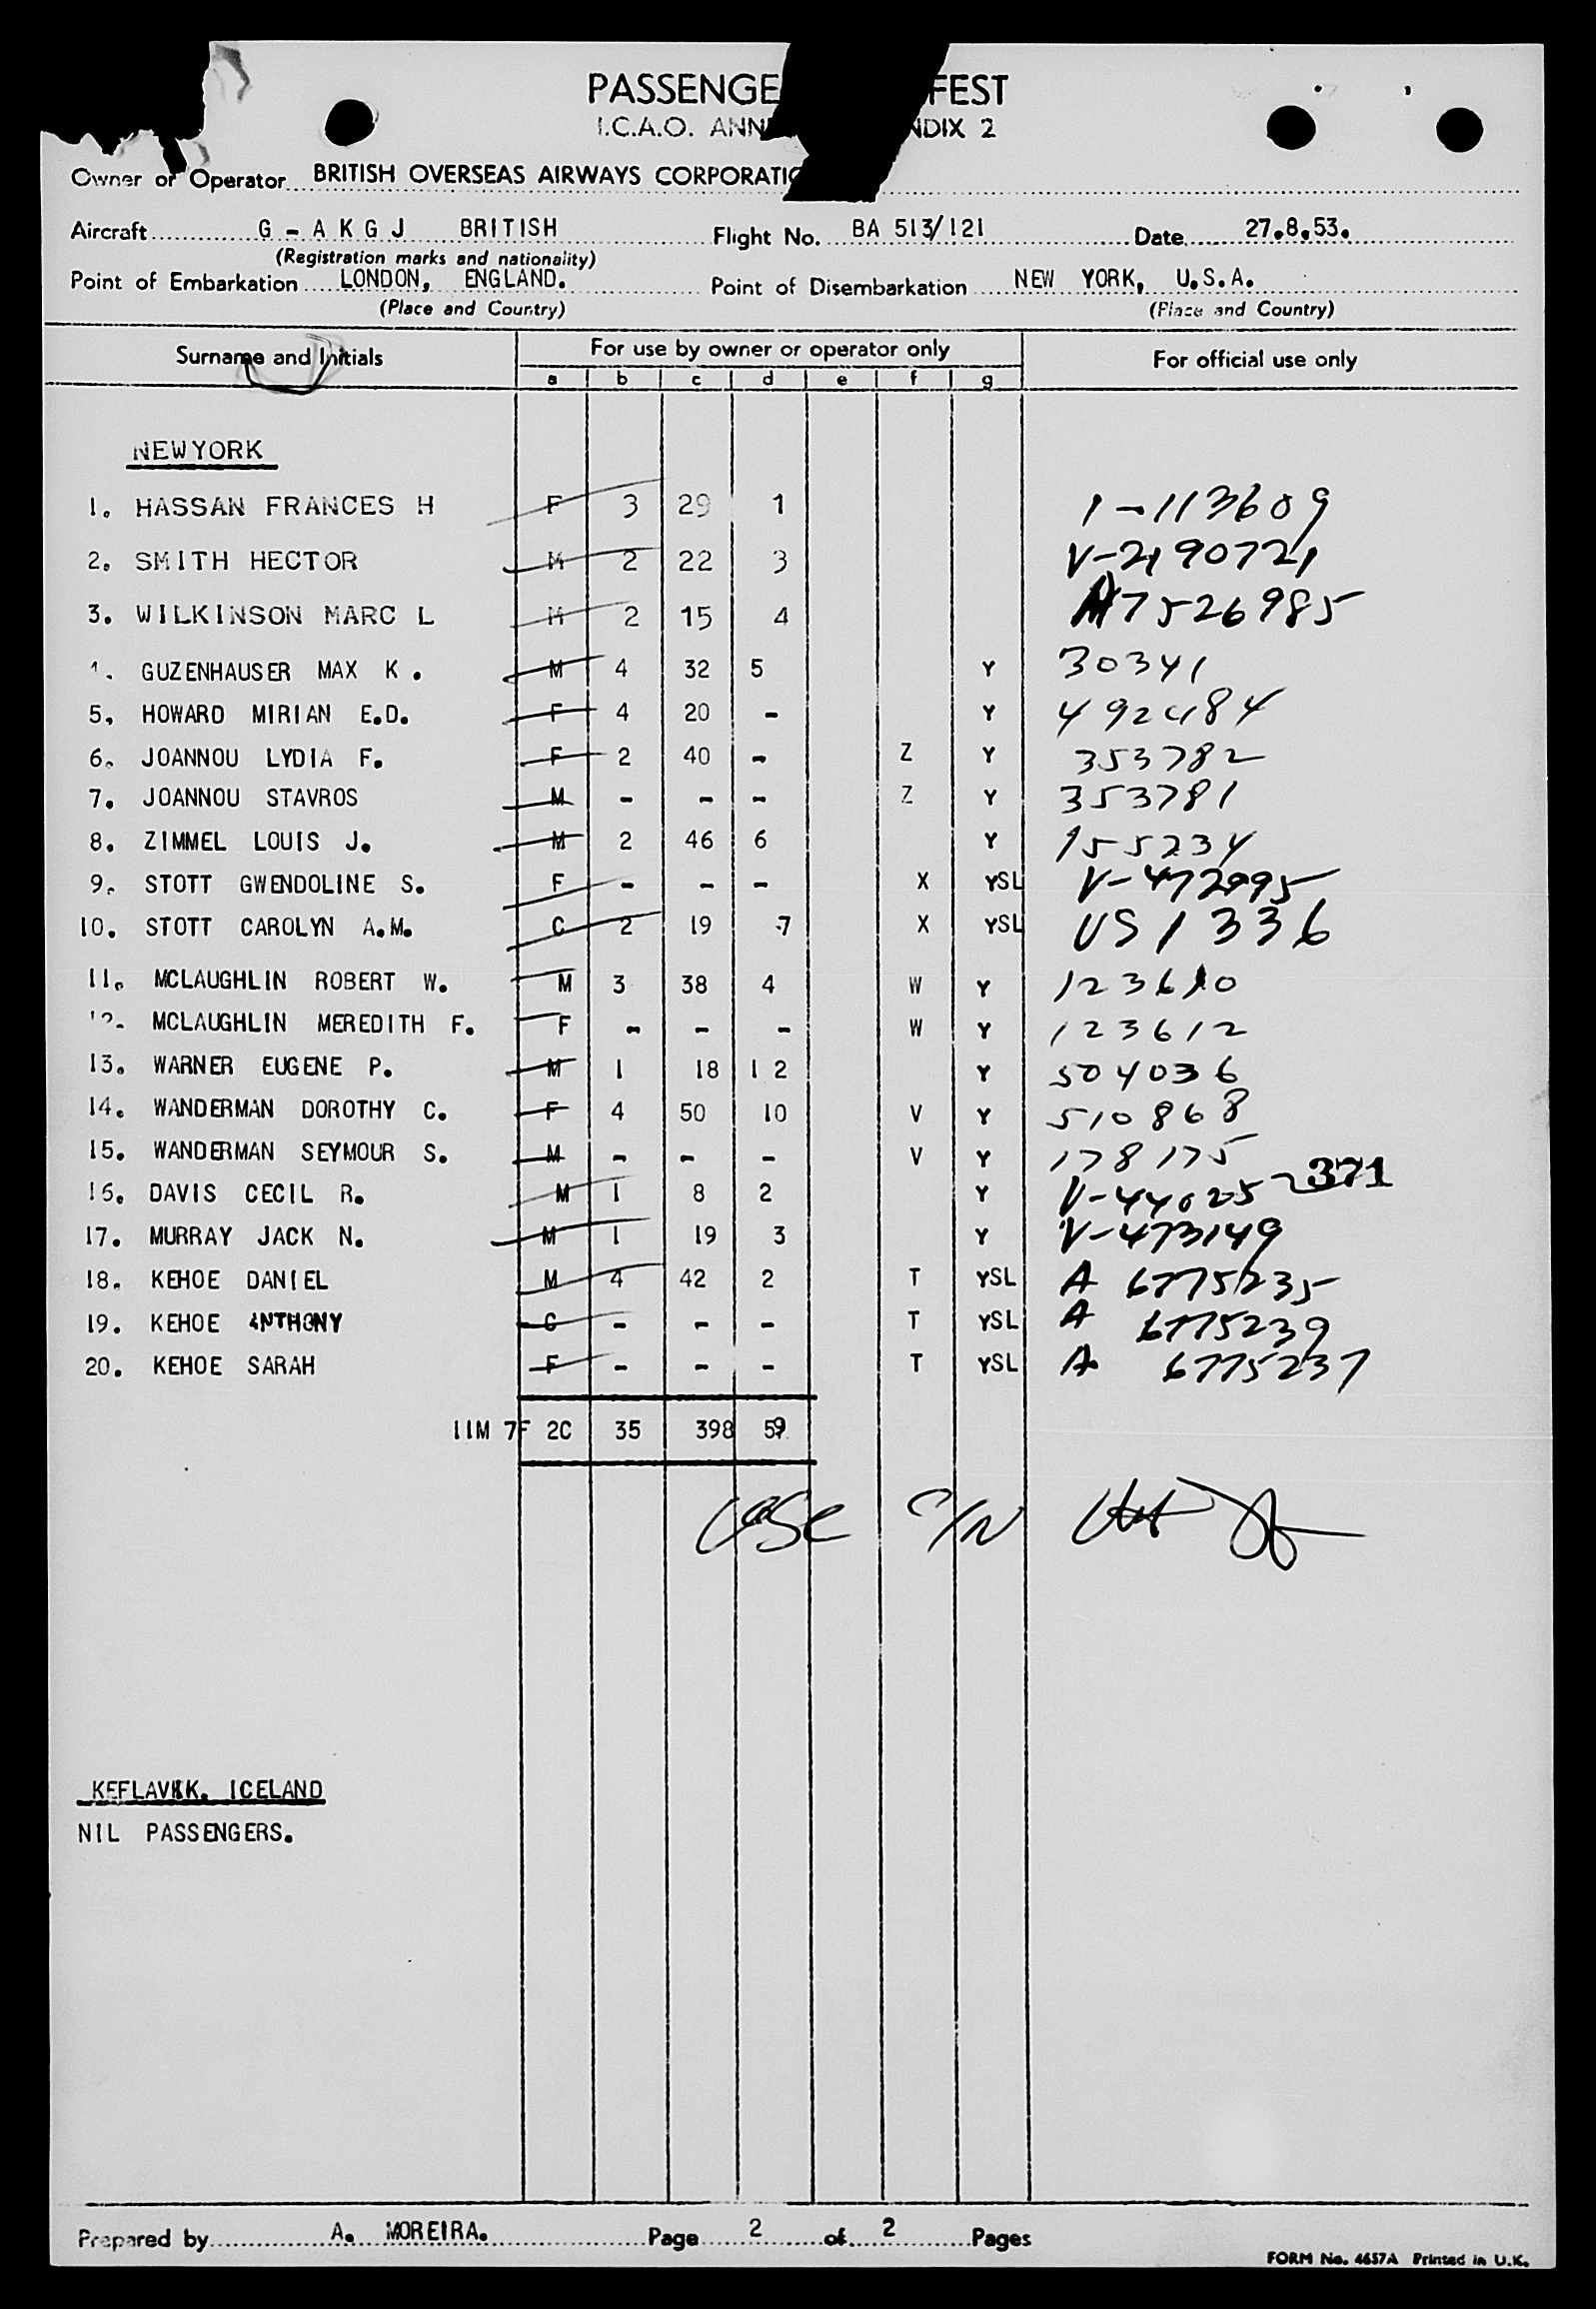 PASSENGE FEST
I.C.A.O. ANN NDIX 2
Owner or Operator BRITISH OVERSEAS AIRWAYS CORPORATIO
Aircraft G - A K G J BRITISH Flight No. BA 513/121 Date 27.8.53.
(Registration marks and nationality)
Point of Embarkation LONDON, ENGLAND. Point of Disembarkation NEW YORK, U.S.A.
(Place and Country) (Place and Country)
Surname and Initials For use by owner or operator only For official use only
a b c d e f g
NEWYORK
1. HASSAN FRANCES H F 3 29 1 1-113609
2. SMITH HECTOR M 2 22 3 V-2190721
3. WILKINSON MARC L M 2 15 4 A7526985
4. GUZENHAUSER MAX K. M 4 32 5 Y 30341
5. HOWARD MIRIAN E.D. F 4 20 - Y 492484
6. JOANNOU LYDIA F. F 2 40 - Z Y 353782
7. JOANNOU STAVROS M - - - Z Y 353781
8. ZIMMEL LOUIS J. M 2 46 6 Y 155234
9. STOTT GWENDOLINE S. F - - - X YSL V-472995
10. STOTT CAROLYN A.M. C 2 19 7 X YSL US1336
11. MCLAUGHLIN ROBERT W. M 3 38 4 W Y 123610
12. MCLAUGHLIN MEREDITH F. F - - - W Y 123612
13. WARNER EUGENE P. M 1 18 12 Y 504036
14. WANDERMAN DOROTHY C. F 4 50 10 V Y 510868
15. WANDERMAN SEYMOUR S. M - - - V Y 178175
16. DAVIS CECIL R. M 1 8 2 Y V-44025 371
17. MURRAY JACK N. M 1 19 3 Y V-473149
18. KEHOE DANIEL M 4 42 2 T YSL A 6775235
19. KEHOE ANTHONY C - - - T YSL A 6775239
20. KEHOE SARAH F - - - T YSL A 6775237
11M 7F 2C 35 398 59
KEFLAVIK. ICELAND
NIL PASSENGERS.
Prepared by A. MOREIRA. Page 2 of 2 Pages
FORM No. 4657A Printed in U.K.